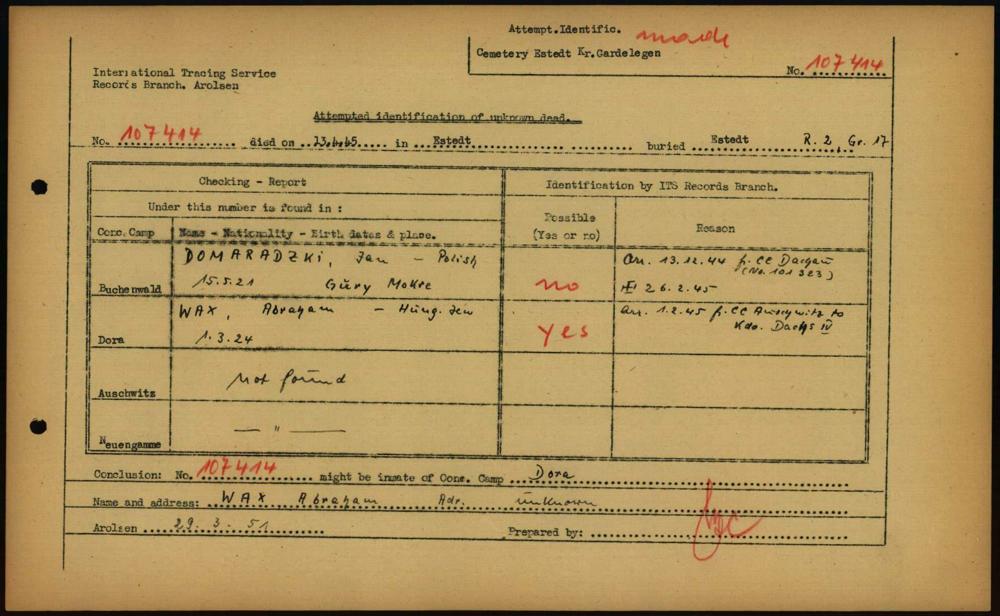 Attempt.Identific. made
Cemetery Estedt Kr.Gardelegen
No. 107414
International Tracing Service
Records Branch. Arolsen
Attempted identification of unknown dead.
No. 107414 died on 13.4.45 in Estedt buried Estedt R. 2 Gr. 17
Checking - Report
Identification by ITS Records Branch.
Under this number is found in :
Conc.Camp
Name - Nationality - Birth dates & place.
Possible
(Yes or no)
Reason
Buchenwald
DOMARADZKI, Jan - Polish
15.5.21 Góry Mokre
no
Arr. 13.12.44 f. CC Dachau
(No. 101 323)
26.2.45
Dora
WAX, Abraham - Hung. Jew
1.3.24
yes
Arr. 1.2.45 f. CC Auschwitz to
Kdo. Dachs IV
Auschwitz
Not found
Neuengamme
— " —
Conclusion: No. 107414 might be inmate of Conc. Camp Dora
Name and address: WAX Abraham Adr. unknown
Arolsen 29. 3. 51
Prepared by: